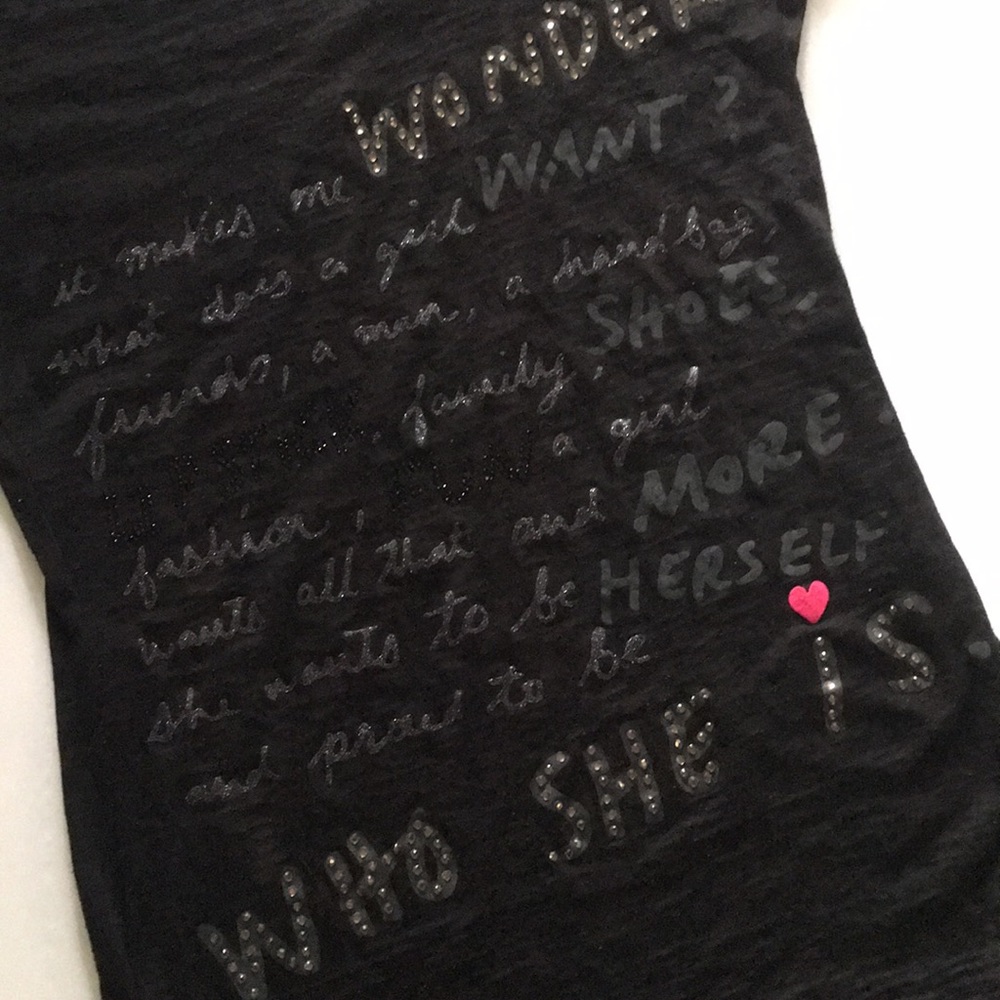 it makes me WONDER
what does a girl WANT?
friends, a man, a handbag,
family, SHOES,
fashion, FUN a girl
wants all that and MORE.
she wants to be HERSELF
and proud to be
WHO SHE iS.